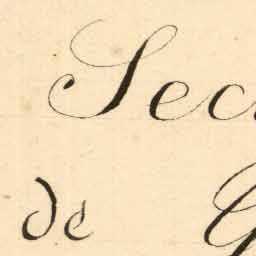 Sec
de G